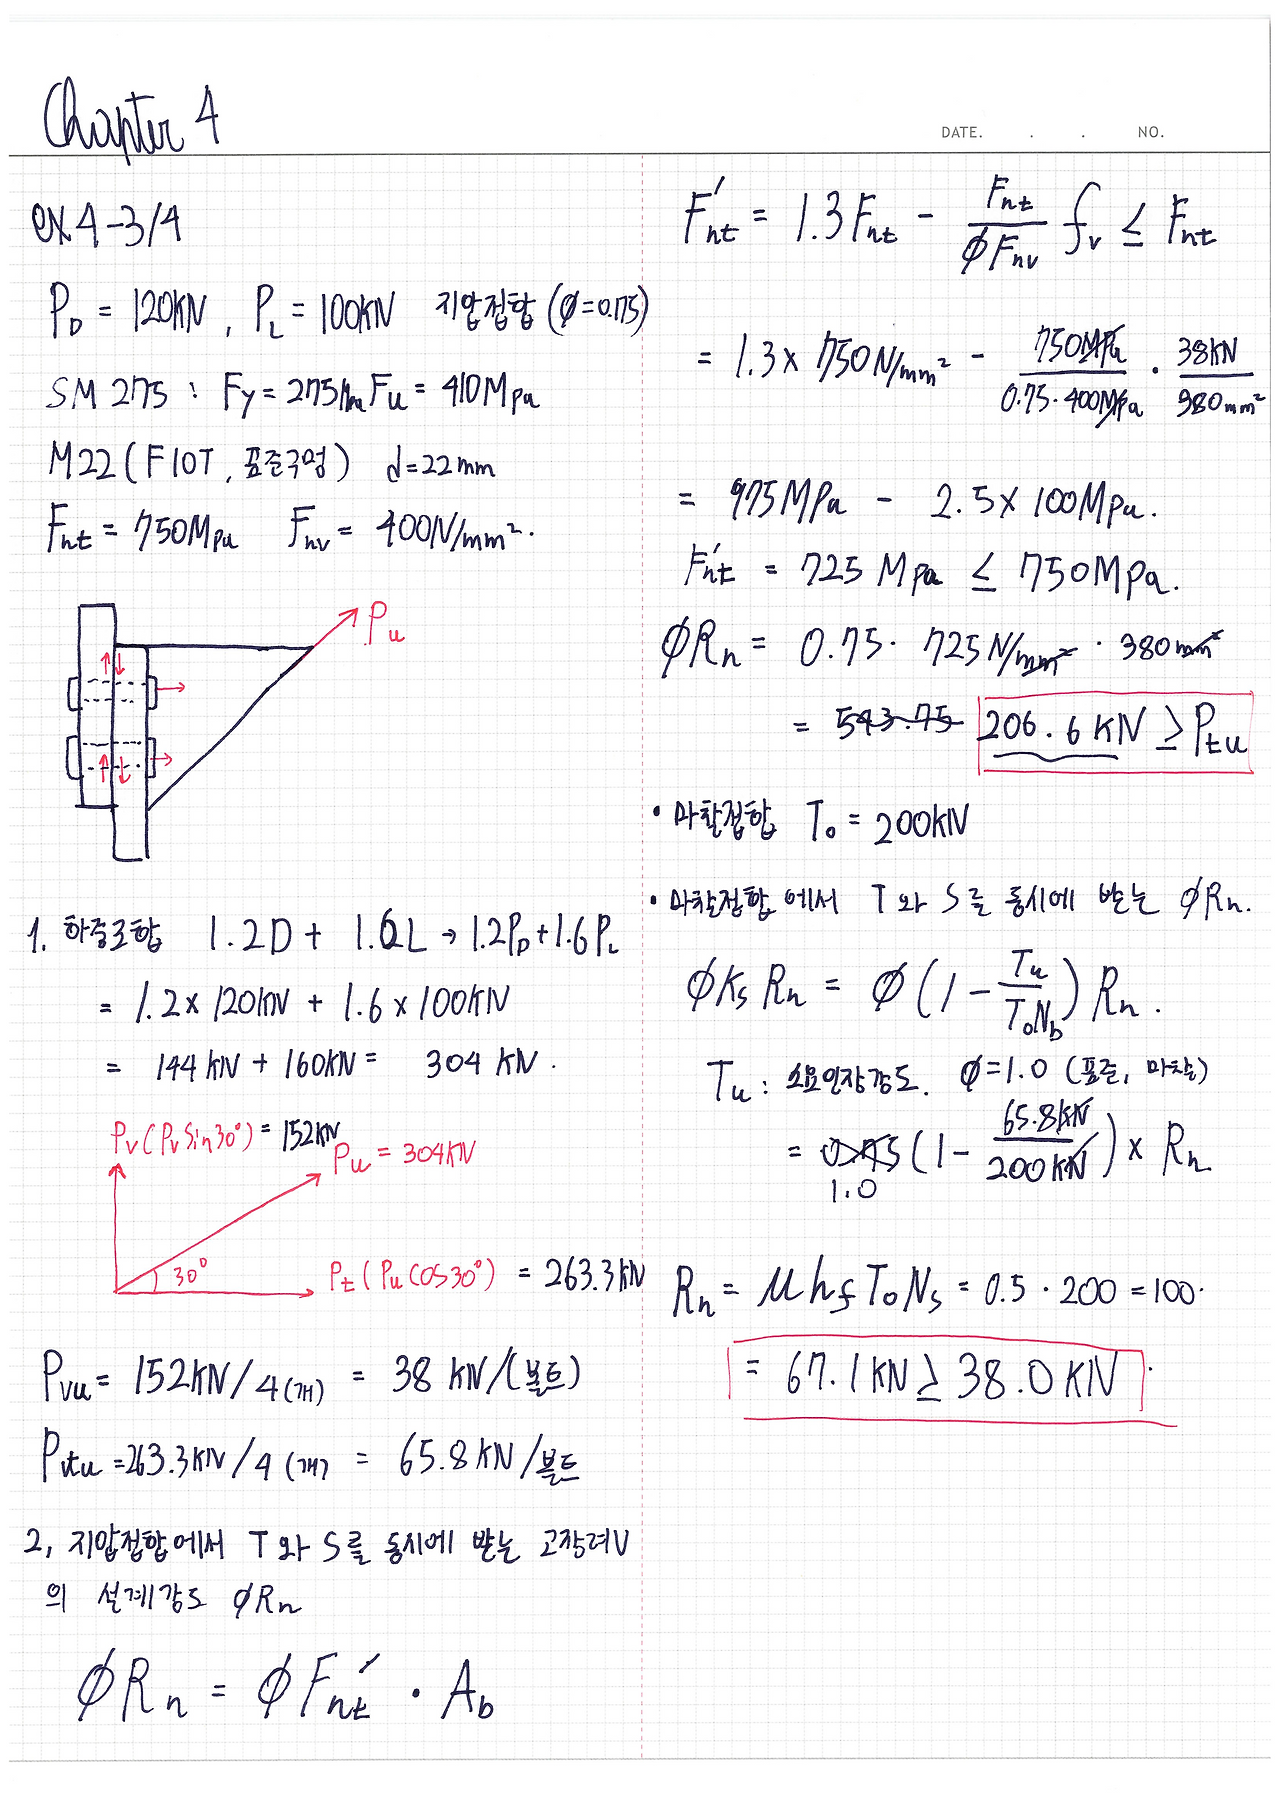 Chapter 4
DATE. . . NO.
ex 4-3/4
P_D = 120KN, P_L = 100KN 지압접합 (φ=0.75)
SM 275 : Fy = 275Mpa Fu = 410Mpa
M22 (F10T, 표준구멍) d=22mm
Fnt = 750Mpa Fnv = 400N/mm².
Pu
1. 하중조합 1.2D + 1.6L → 1.2P_D + 1.6P_L
= 1.2 × 120KN + 1.6 × 100KN
= 144 KN + 160KN = 304 KN.
Pv (Pv Sin30°) = 152KN
Pu = 304KN
30°
Pt (Pu COS30°) = 263.3KN
Pvu = 152KN/4(개) = 38 KN/(볼트)
Ptu = 263.3KN/4(개) = 65.8KN/볼트
2, 지압접합에서 T와 S를 동시에 받는 고장력
의 설계강도 φRn
φRn = φF'nt · Ab
F'nt = 1.3Fnt - Fnt/φFnv fv ≤ Fnt
= 1.3 × 750N/mm² - 750MPa/0.75·400MPa · 38KN/380mm²
= 975MPa - 2.5 × 100Mpa.
F'nt = 725 Mpa ≤ 750MPa.
φRn = 0.75 · 725N/mm² · 380mm²
= 543.75 206.6 KN ≥ Ptu
• 마찰접합 T₀ = 200KN
• 마찰접합에서 T와 S를 동시에 받는 φRn.
φKs Rn = φ(1 - Tu/T₀Nb) Rn.
Tu : 소요인장강도. φ=1.0 (표준, 마찰)
= 0.75 (1 - 65.8KN/200KN) × Rn
1.0
Rn = μ hf T₀ Ns = 0.5 · 200 = 100.
= 67.1KN ≥ 38.0KN.